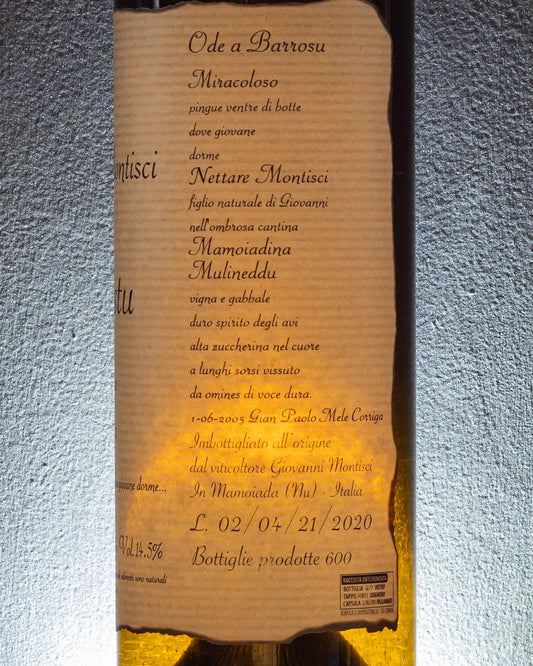 Ode a Barrosu
Miracoloso
pingue ventre di botte
dove giovane
dorme
Nettare Montisci
figlio naturale di Giovanni
nell'ombrosa cantina
Mamoiadina
Mulineddu
vigna e gabbale
duro spirito degli avi
alta zuccherina nel cuore
a lunghi sorsi vissuto
da omines di voce dura.
1-06-2005 Gian Paolo Mele Corriga
Imbottigliato all'origine
dal viticoltore Giovanni Montisci
In Mamoiada (Nu) - Italia
L. 02/04/21/2020
Bottiglie prodotte 600
ontisci
tu
giovane dorme...
Vol.14.5%
sedimenti sono naturali
RACCOLTA DIFFERENZIATA
BOTTIGLIA VETRO
TAPPO SUGHERO
CAPSULA